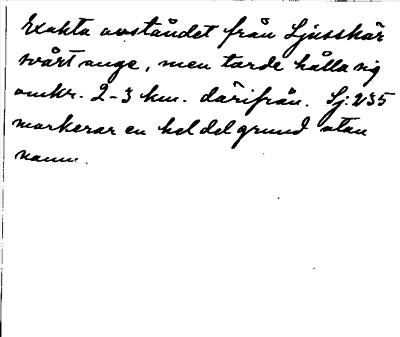 Exakta avståndet från Ljusskär
svårt ange, men torde hålla sig
omkr. 2-3 km. därifrån. Sj: 235
markerar en hel del grund utan
namn.